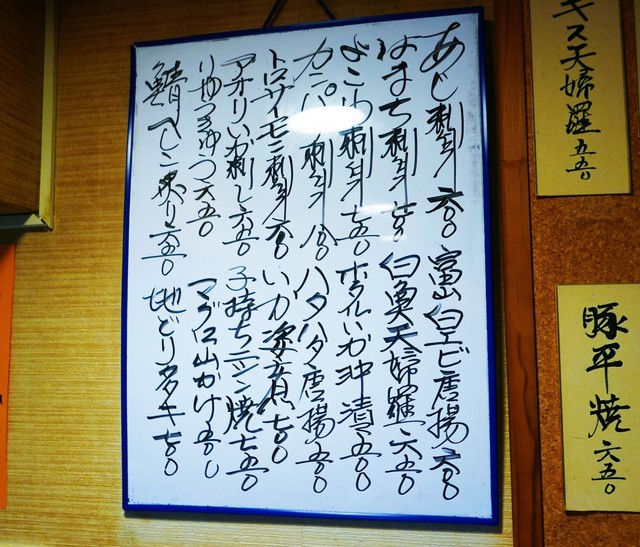 キス天婦羅 五五〇
豚平焼 六五〇
あじ刺身 六〇〇
富山白エビ唐揚 六〇〇
はまち刺身 七〇〇
白魚天婦羅 六五〇
よこわ刺身 七五〇
ホタルいか沖漬 五〇〇
カンパ刺身 八〇〇
ハタハタ唐揚 五〇〇
トロサーモン刺身 六〇〇
いか姿煮 七〇〇
アオリいか刺し 六五〇
子持ちニシン焼 七五〇
りゅうきゅう 六五〇
マグロ山かけ 五〇〇
鯖へしこ炙り 六五〇
地どりタタキ 七〇〇